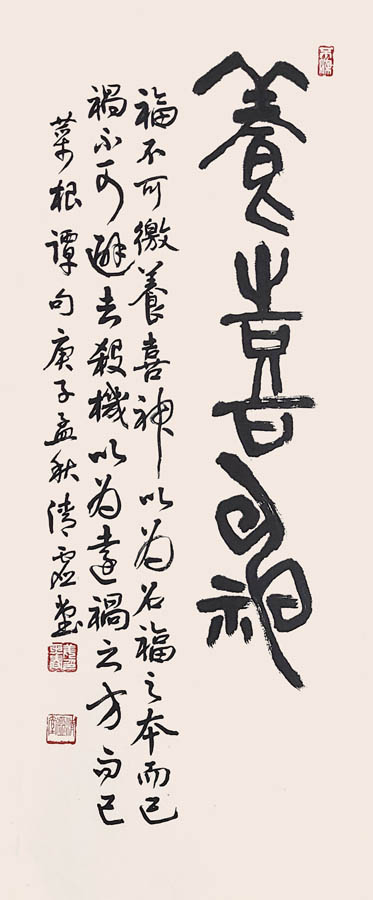 養喜神
福不可徼養喜神以為召福之本而已
禍不可避去殺機以為遠禍之方而已
菜根譚句庚子孟秋清虛堂